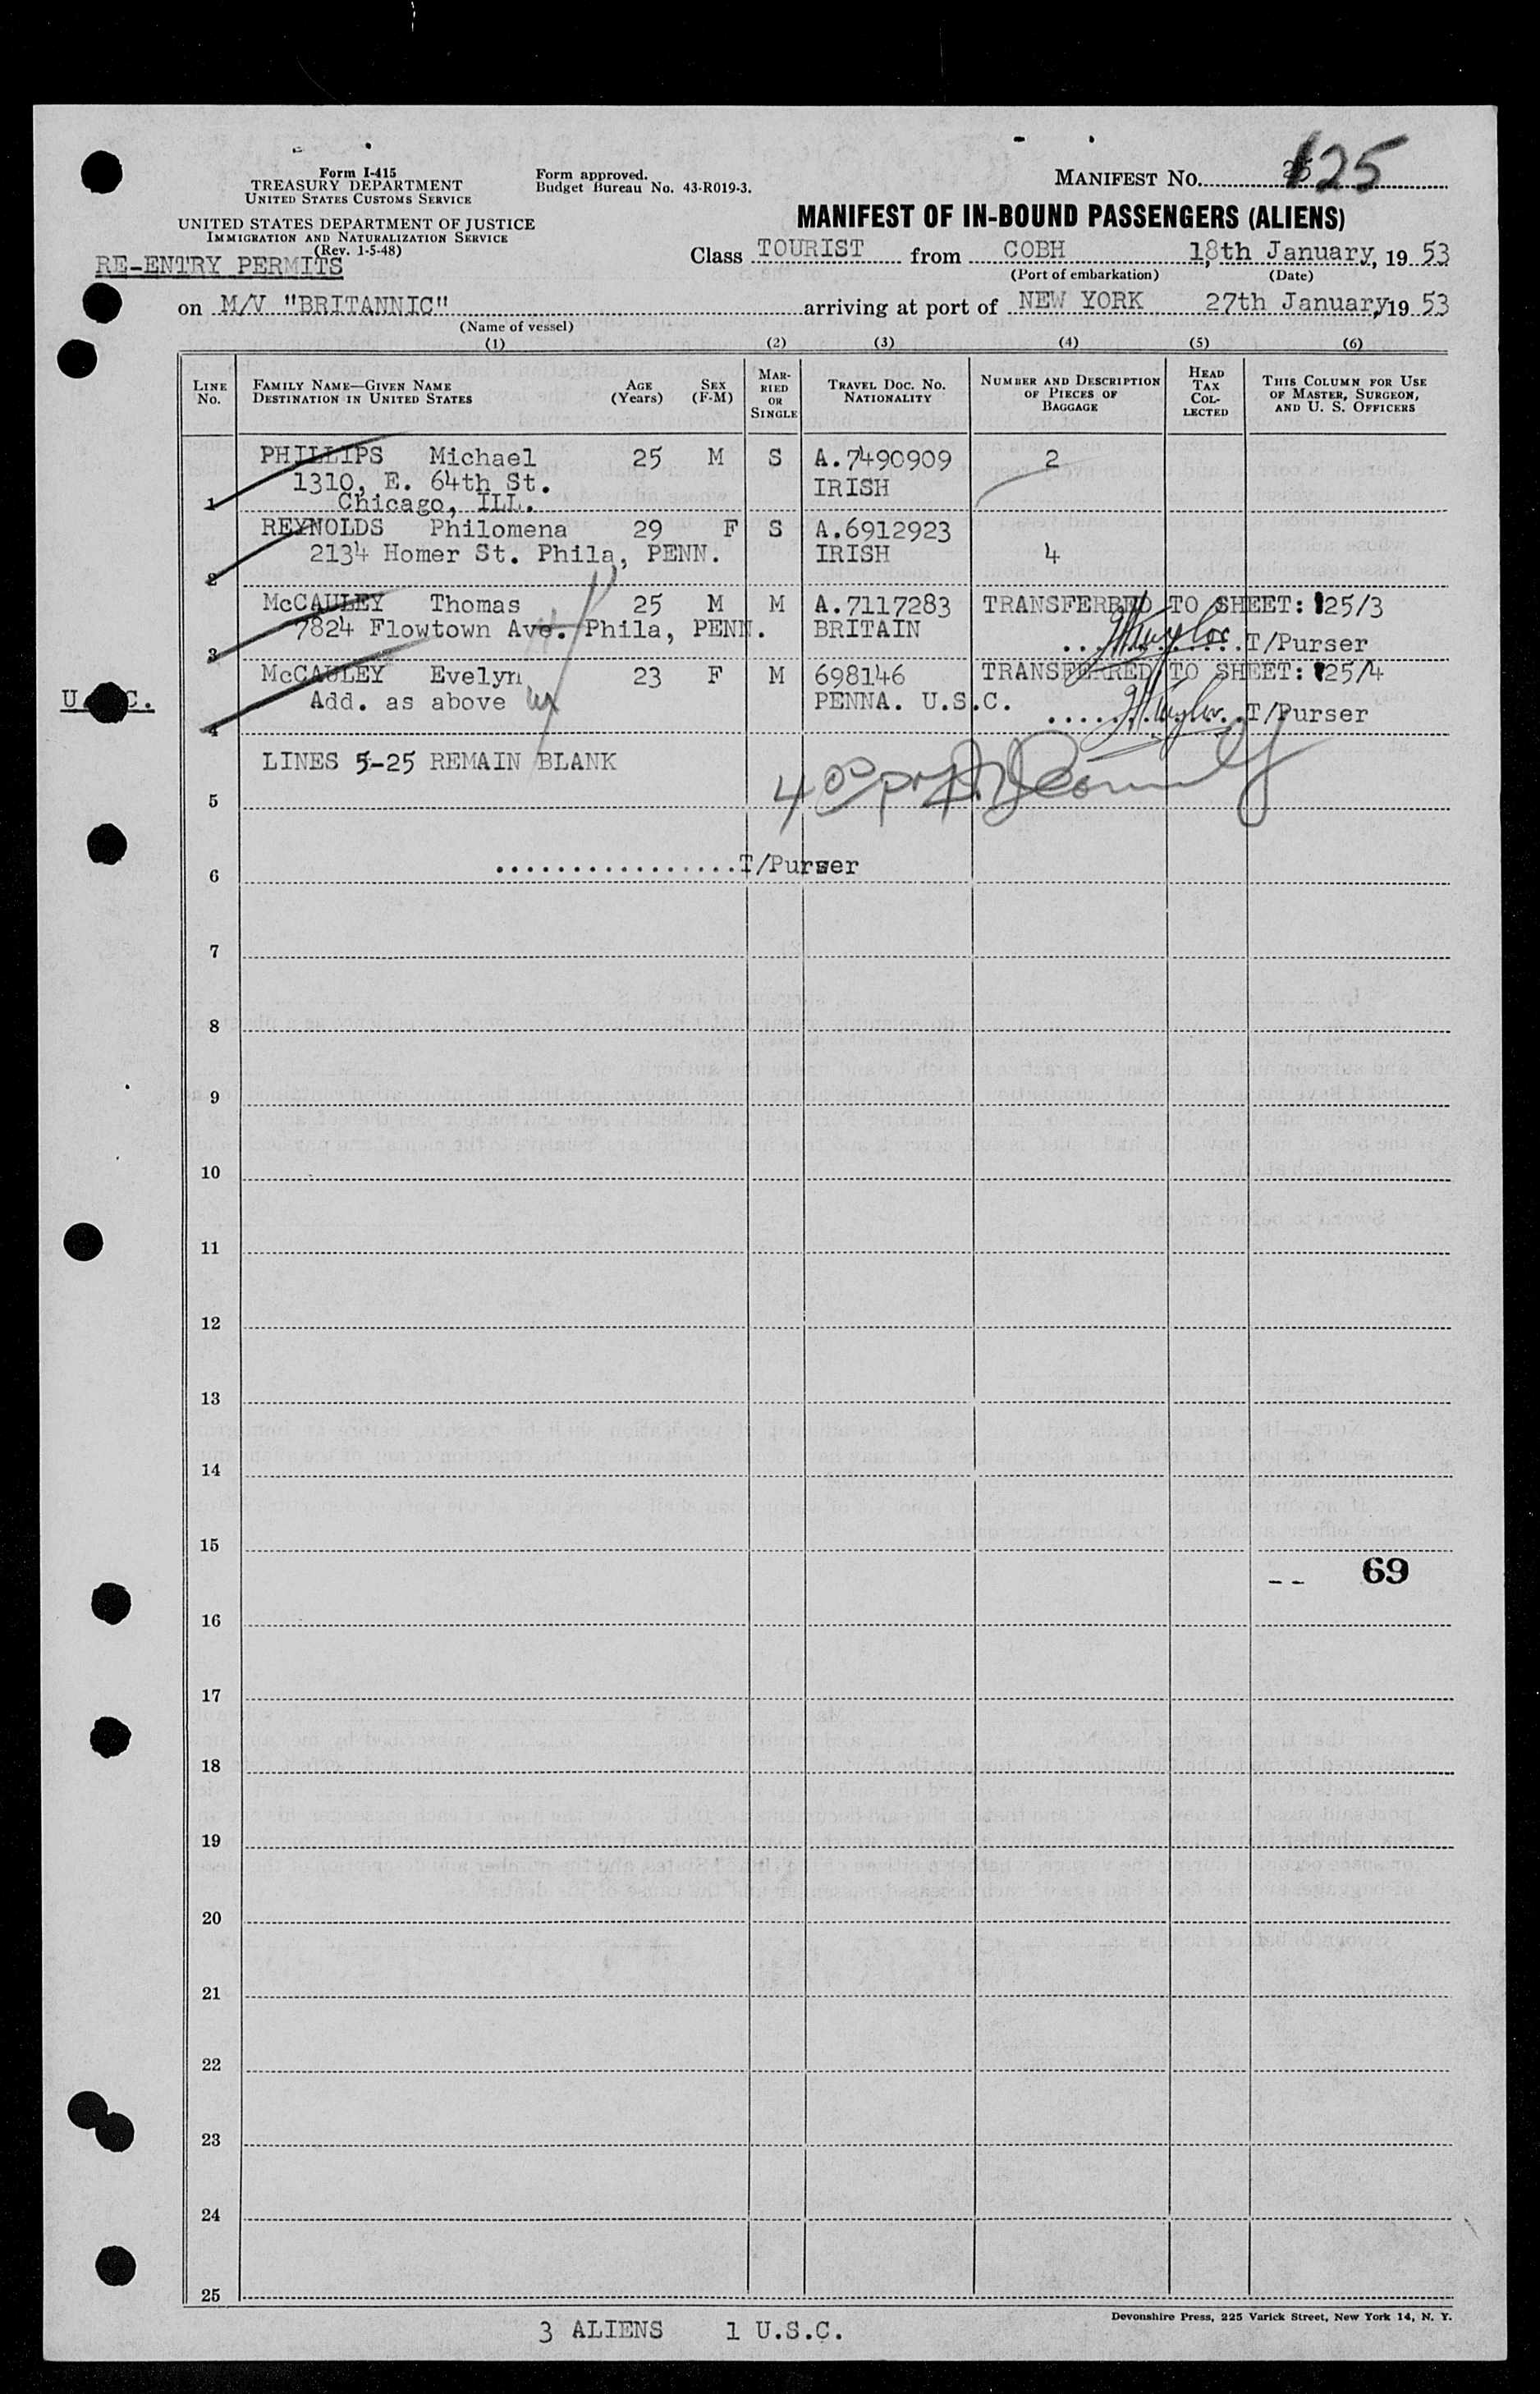 Form I-415
TREASURY DEPARTMENT
UNITED STATES CUSTOMS SERVICE
UNITED STATES DEPARTMENT OF JUSTICE
IMMIGRATION AND NATURALIZATION SERVICE
(Rev. 1-5-48)
RE-ENTRY PERMITS
Form approved.
Budget Bureau No. 43-R019-3.
MANIFEST NO. 125
MANIFEST OF IN-BOUND PASSENGERS (ALIENS)
Class TOURIST from COBH 18th January, 19 53
(Port of embarkation) (Date)
on M/V "BRITANNIC" arriving at port of NEW YORK 27th January, 19 53
(Name of vessel)
(1) (2) (3) (4) (5) (6)
LINE NO.
FAMILY NAME—GIVEN NAME
DESTINATION IN UNITED STATES
AGE (Years)
SEX (F-M)
MARRIED OR SINGLE
TRAVEL DOC. NO.
NATIONALITY
NUMBER AND DESCRIPTION OF PIECES OF BAGGAGE
HEAD TAX COLLECTED
THIS COLUMN FOR USE OF MASTER, SURGEON, AND U. S. OFFICERS
PHILLIPS Michael 25 M S A.7490909 2
1310, E. 64th St. IRISH
1 Chicago, ILL.
REYNOLDS Philomena 29 F S A.6912923
2134 Homer St. Phila, PENN. IRISH 4
2
McCAULEY Thomas 25 M M A.7117283 TRANSFERRED TO SHEET: 125/3
7824 Flowtown Ave. Phila, PENN. BRITAIN T/Purser
3
McCAULEY Evelyn 23 F M 698146 TRANSFERRED TO SHEET: 125/4
U.S.C. Add. as above PENNA. U.S.C. T/Purser
4
LINES 5-25 REMAIN BLANK
5
T/Purser
6
7
8
9
10
11
12
13
14
15
69
16
17
18
19
20
21
22
23
24
25
Devonshire Press, 225 Varick Street, New York 14, N. Y.
3 ALIENS 1 U.S.C.